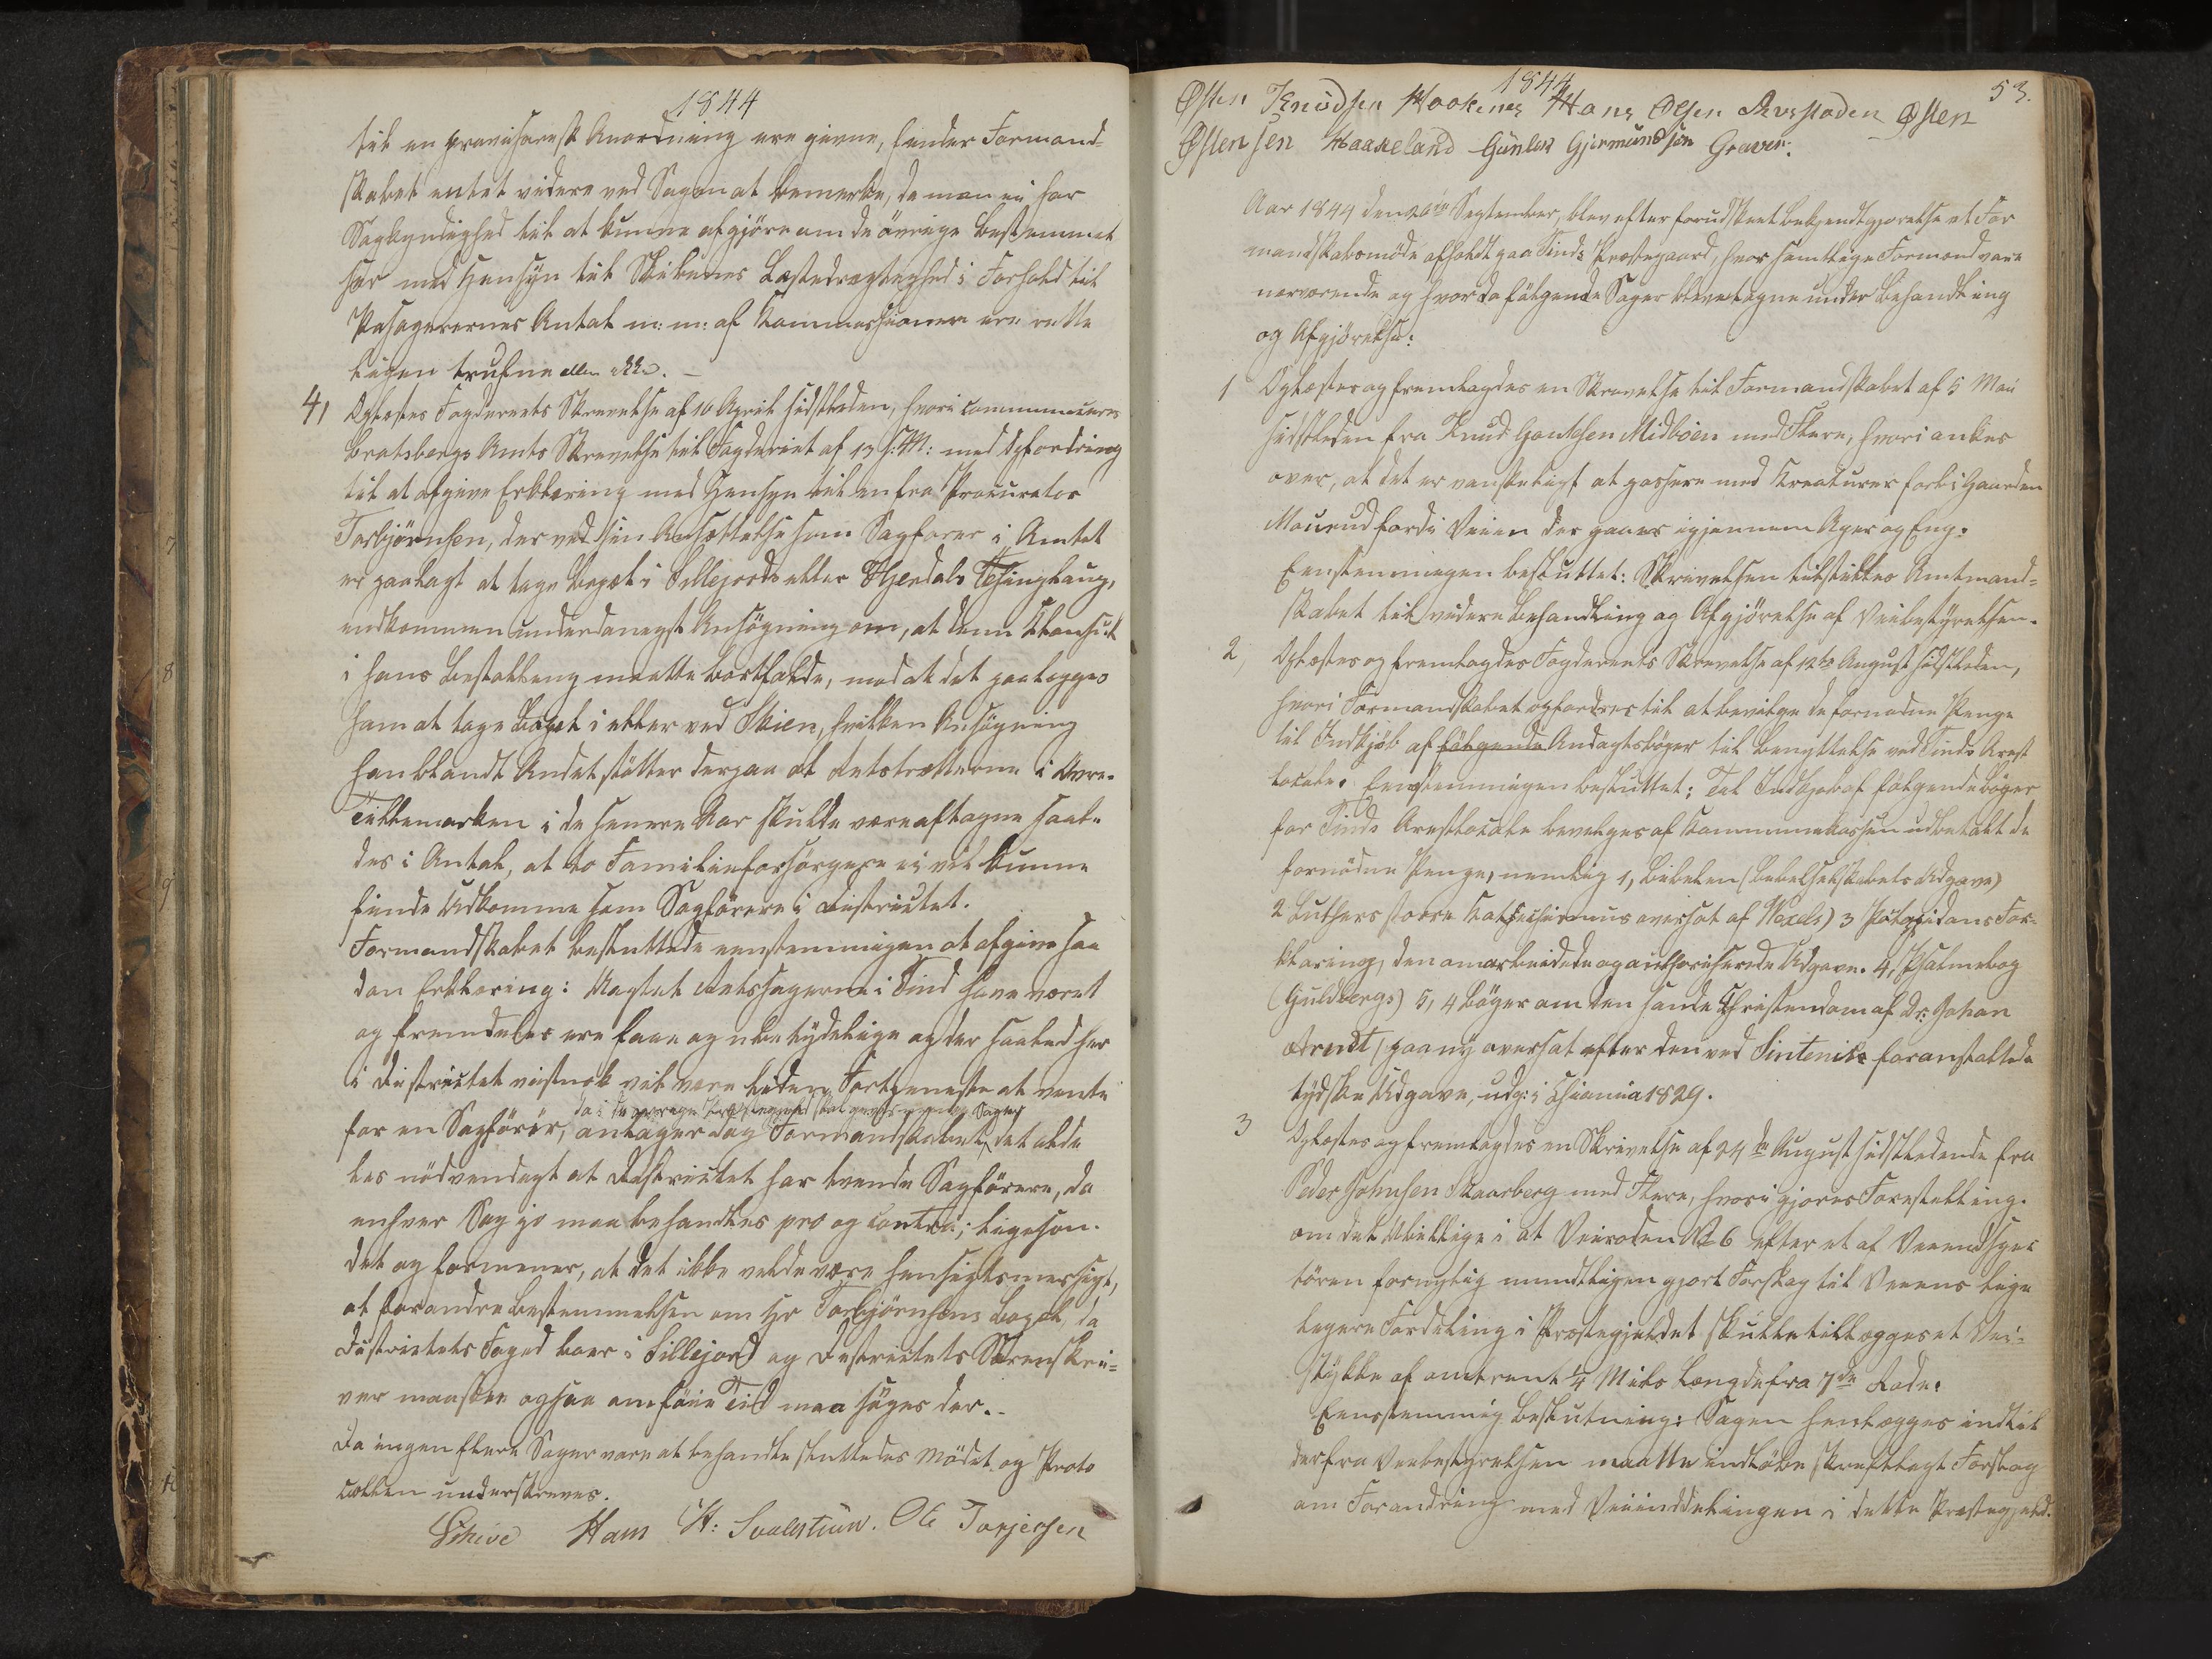 1844
til en provisorisk Anordning ere givne, finder Formand=
skabet intet videre ved Sagen at bemerke, da man ei har
Sagkyndighed til at kunne afgjöre om de övrige Bestemmel
ser med Hensyn til Skibenes Læstedrægtighed i Forhold til
Passagerernes Antal m: m: af Kommissionen ere rette
ligen trufne eller ikke. –
4, Oplæstes Fogderiets Skrivelse af 16 April sidstleden, hvori communiceres
Bratsbergs Amts Skrivelse til Fogderiet af 13 s: M: med Opfordring
til at afgive Erklæring med Hensyn til en fra Procurator
Torbjörnsen, der ved sin Ansættelse som Sagförer i Amtet
er paalagt at tage Bopæl i Sillejords eller Hjerdals Thinglaug,
indkommen underdanigst Ansögning om, at denne Clausul
i hans Bestalling maatte bortfalde, mod at det paalægges
ham at tage Bopæl i eller ved Skien, hvilken Ansögning
han blandt Andet stötter derpaa at Retstrætterne i Övre-
Tellemarken i de senere Aar skulde være aftagne saale
des i Antal, at to Familieforsörgere ei vil kunne
finde Udkomme som Sagförere i Districtet.
Formandskabet besluttede eenstemmigen at afgive saa
dan Erklæring: Uagtet Retssagerne i Tind have været
og fremdeles ere faae og ubetydelige og der saaled her
i Districtet vistnok vil være liden Fortjeneste at vente
da i de övrige Præstegjeld skal gives mange Sager
for en Sagförer, antager dog Formandskabet, det alde
les nödvendigt at Districtet har tvende Sagförere, da
enhver Sag jo maa behandles pro og contra; ligesom
det og formener, at det ikke vilde være hensigtsmessigt,
at forandre Bestemmelsen om Hr Torbjörnsens Bopæl, da
Districtets Foged boer i Sillejord og Districtets Sorenskri=
ver maaskee ogsaa om föie Tid maa söges der. –
Da ingen flere Sager vare at behandle sluttedes Mödet og Proto
collen underskreves.
Schive Hans H: Svalestuen. Ole Torjersen
1844
53.
Østen Knudsen Haakenes Hans Olsen Østen
Østensen Haakeland Gunlek Gjermundsen Graver.
Aar 1844 den 20de September, blev efter forudskeet Bekjendtgjørelse et For
mandskabsmöde afholdt paa Tinds Præstegaard, hvor samtlige Formænd vare
nærværende og hvor da fölgende Sager bleve tagne under Behandling
og Afgjörelse:
1 Oplæstes og fremlagdes en Skrivelse til Formandskabet af 5 Mai
sidstleden fra Knud Gautesen Midböen med Flere, hvori ankes
over, at det er vanskeligt at passere med Kreaturer forbi Gaarden
Maurud fordi Veien der gaaer igjennem Ager og Eng.
Eenstemmigen besluttet: Skrivelsen tilstilles Amtmand=
skabet til videre Behandling og Afgjörelse af Veibestyrelsen.
2, Oplæstes og fremlagdes Fogderiets Skrivelse af 12te August sidstleden,
hvori Formandskabet opfordres til at bevilge de fornödne Penge
til Indkjöb af fölgende Andagtsböger til Benyttelse ved Tinds Arest
locale. Eenstemmigen besluttet: Til Indkjöb af fölgende Böger
for Tinds Arestlocale bevilges af Kommunekassen udbetalt de
fornödne Penge, nemlig 1, Bibelen (Bibelselskabets Udgave)
2 Luthers store Katechismus oversat af Wexels) 3 Pontoppidans For=
klaring, den omarbeidede og authoriserede Udgave. 4, Psalmebog
(Guldbergs) 5, 4 Böger om den sande Christendom af Dr. Johan
Arndt, paa ny oversat efter den ved Sintenis foranstaltede
tydske Udgave, udg: i Chiania 1829.
3 Oplæstes og fremlagdes en Skrivelse af 24de August sidstledende fra
Peder Johnsen Skaarberg med Flere, hvori gjöres Forestilling
om det Ubillige i at Veiroden No 6 efter et af Veiinspec
tören foreløbig mundtligen gjort Forslag til Veiens lige
ligere Fordeling i Præstegjeldet skulle tillægges et Vei=
stykke af omtrent 1/4 Miils Længde fra 7de Rode.
Eenstemmig Beslutning: Sagen henlægges indtil
der fra Veibestyrelsen maatte indlöbe skriftligt Forslag
om Forandring med Veiinddelingen i dette Præstegjeld.